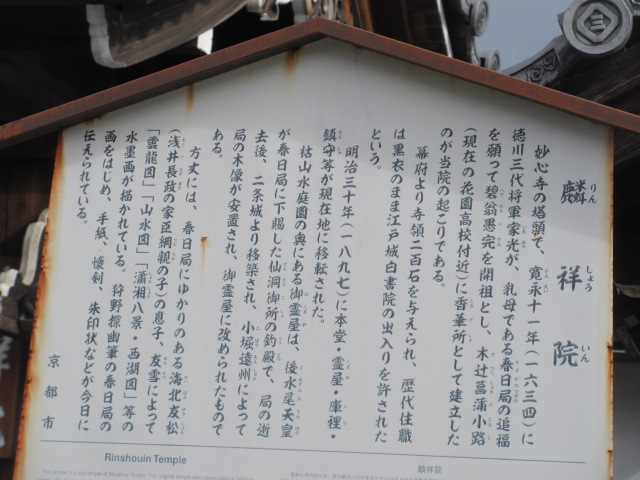 麟祥院
りんしょういん
妙心寺の塔頭で、寛永十一年(一六三四)に
徳川三代将軍家光が、乳母である春日局の追福
を願って碧翁愚完を開祖とし、木辻菖蒲小路
(現在の花園高校付近)に香華所として建立した
のが当院の起こりである。
幕府より寺領二百石を与えられ、歴代住職
は黒衣のまま江戸城白書院の出入りを許された
という。
明治三十年(一八九七)に本堂・霊屋・庫裡・
鎮守等が現在地に移転された。
枯山水庭園の奥にある御霊屋は、後水尾天皇
が春日局に下賜した仙洞御所の釣殿で、局の逝
去後、二条城より移築され、小堀遠州によって
局の木像が安置され、御霊屋に改められたもので
ある。
方丈には、春日局にゆかりのある海北友松
(浅井長政の家臣綱親の子)の息子、友雪によって
「雲龍図」「山水図」「瀟湘八景・西湖図」等の
水墨画が描かれている。狩野探幽筆の春日局の
画をはじめ、手紙、懐剣、朱印状などが今日に
伝えられている。
京都市
Rinshouin Temple
麟祥院